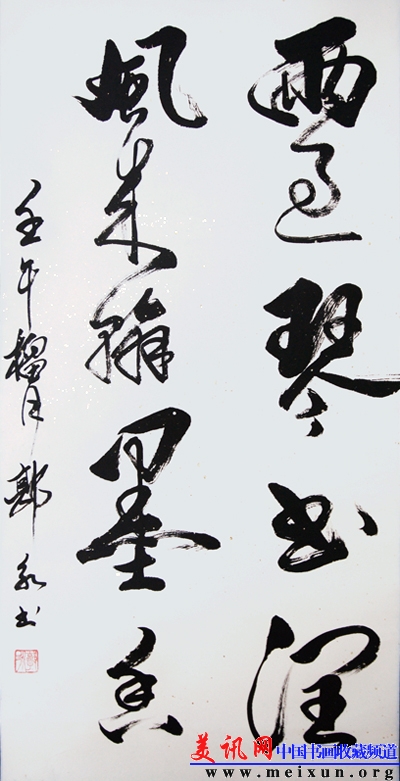 雨過琴書潤
風來翰墨香
壬午榴月 永書
美讯网 中国书画收藏频道
www.meixun.org